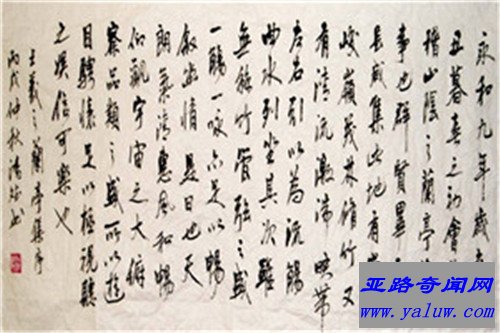 永和九年歲在
丑暮春之初會
稽山陰之蘭亭
事也群賢畢
長咸集此地有
峻嶺茂林脩竹又
有清流激湍映帶
左右引以為流觴
曲水列坐其次雖
無絲竹管弦之盛
一觴一詠亦足以暢
敘幽情是日也天
朗氣清惠風和暢
仰觀宇宙之大俯
察品類之盛所以遊
目騁懷足以極視聽
之娛信可樂也
王羲之蘭亭集序
丙戌仲秋書
亚路奇闻网
www.yaluw.com